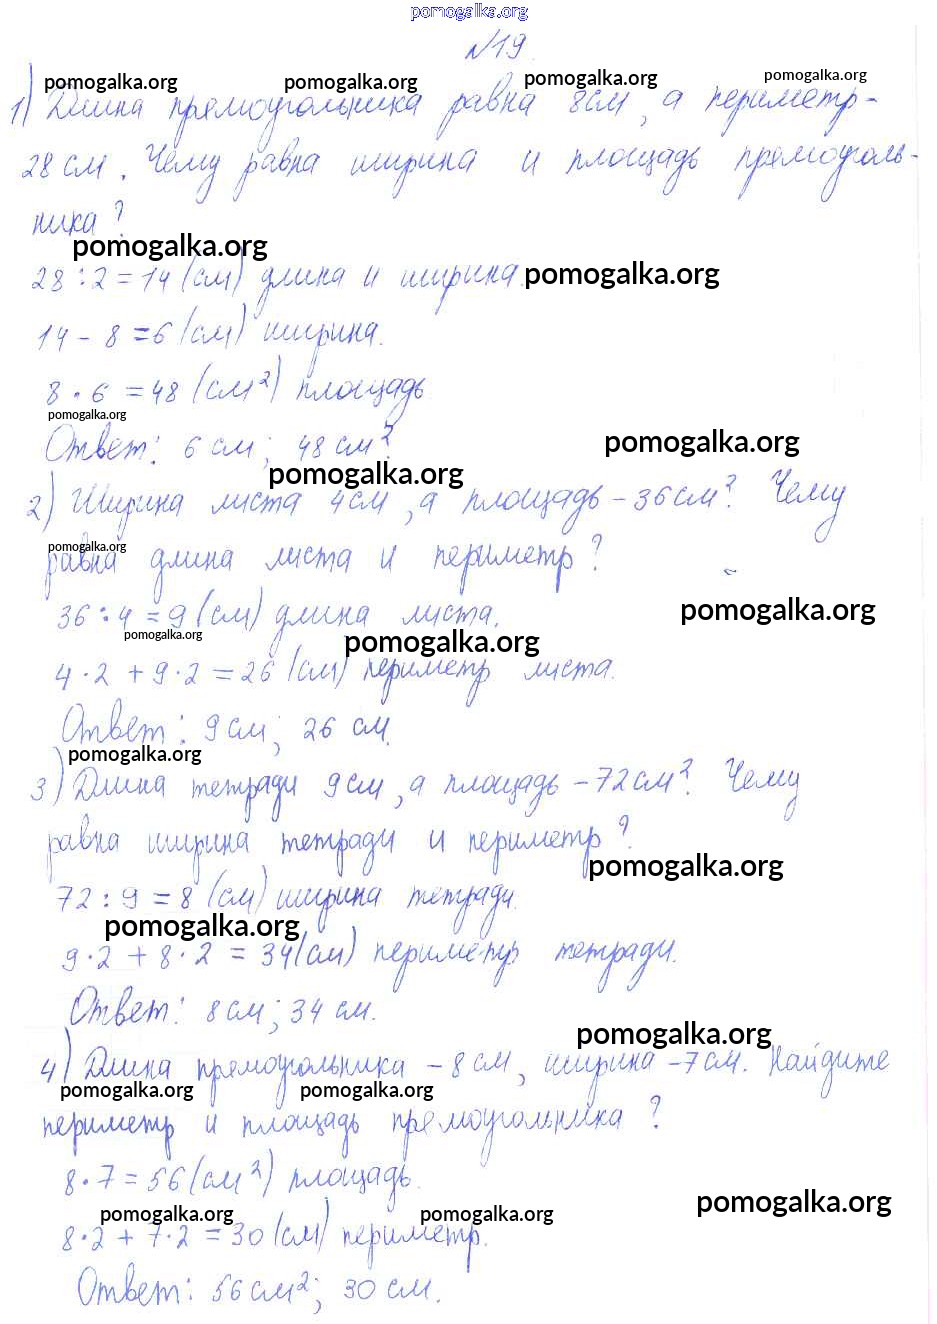 pomogalka.org
№19.
pomogalka.org pomogalka.org pomogalka.org pomogalka.org
1) Длина прямоугольника равна 8см, а периметр-
28 см. Чему равна ширина и площадь прямоуголь-
ника?
pomogalka.org
28 : 2 = 14 (см) длина и ширина. pomogalka.org
14 - 8 = 6 (см) ширина.
8 · 6 = 48 (см²) площадь
pomogalka.org
Ответ: 6 см; 48 см². pomogalka.org
pomogalka.org
2) Ширина листа 4см, а площадь - 36 см². Чему
pomogalka.org
равна длина листа и периметр?
36 : 4 = 9 (см) длина листа. pomogalka.org
pomogalka.org pomogalka.org
4 · 2 + 9 · 2 = 26 (см) периметр листа.
Ответ: 9 см; 26 см.
pomogalka.org
3) Длина тетради 9см, а площадь - 72 см². Чему
равна ширина тетради и периметр?
pomogalka.org
72 : 9 = 8 (см) ширина тетради.
pomogalka.org
9 · 2 + 8 · 2 = 34 (см) периметр тетради.
Ответ: 8 см; 34 см.
pomogalka.org
4) Длина прямоугольника - 8 см, ширина - 7 см. Найдите
pomogalka.org pomogalka.org
периметр и площадь прямоугольника?
8 · 7 = 56 (см²) площадь.
pomogalka.org
pomogalka.org pomogalka.org
8 · 2 + 7 · 2 = 30 (см) периметр.
Ответ: 56 см²; 30 см.